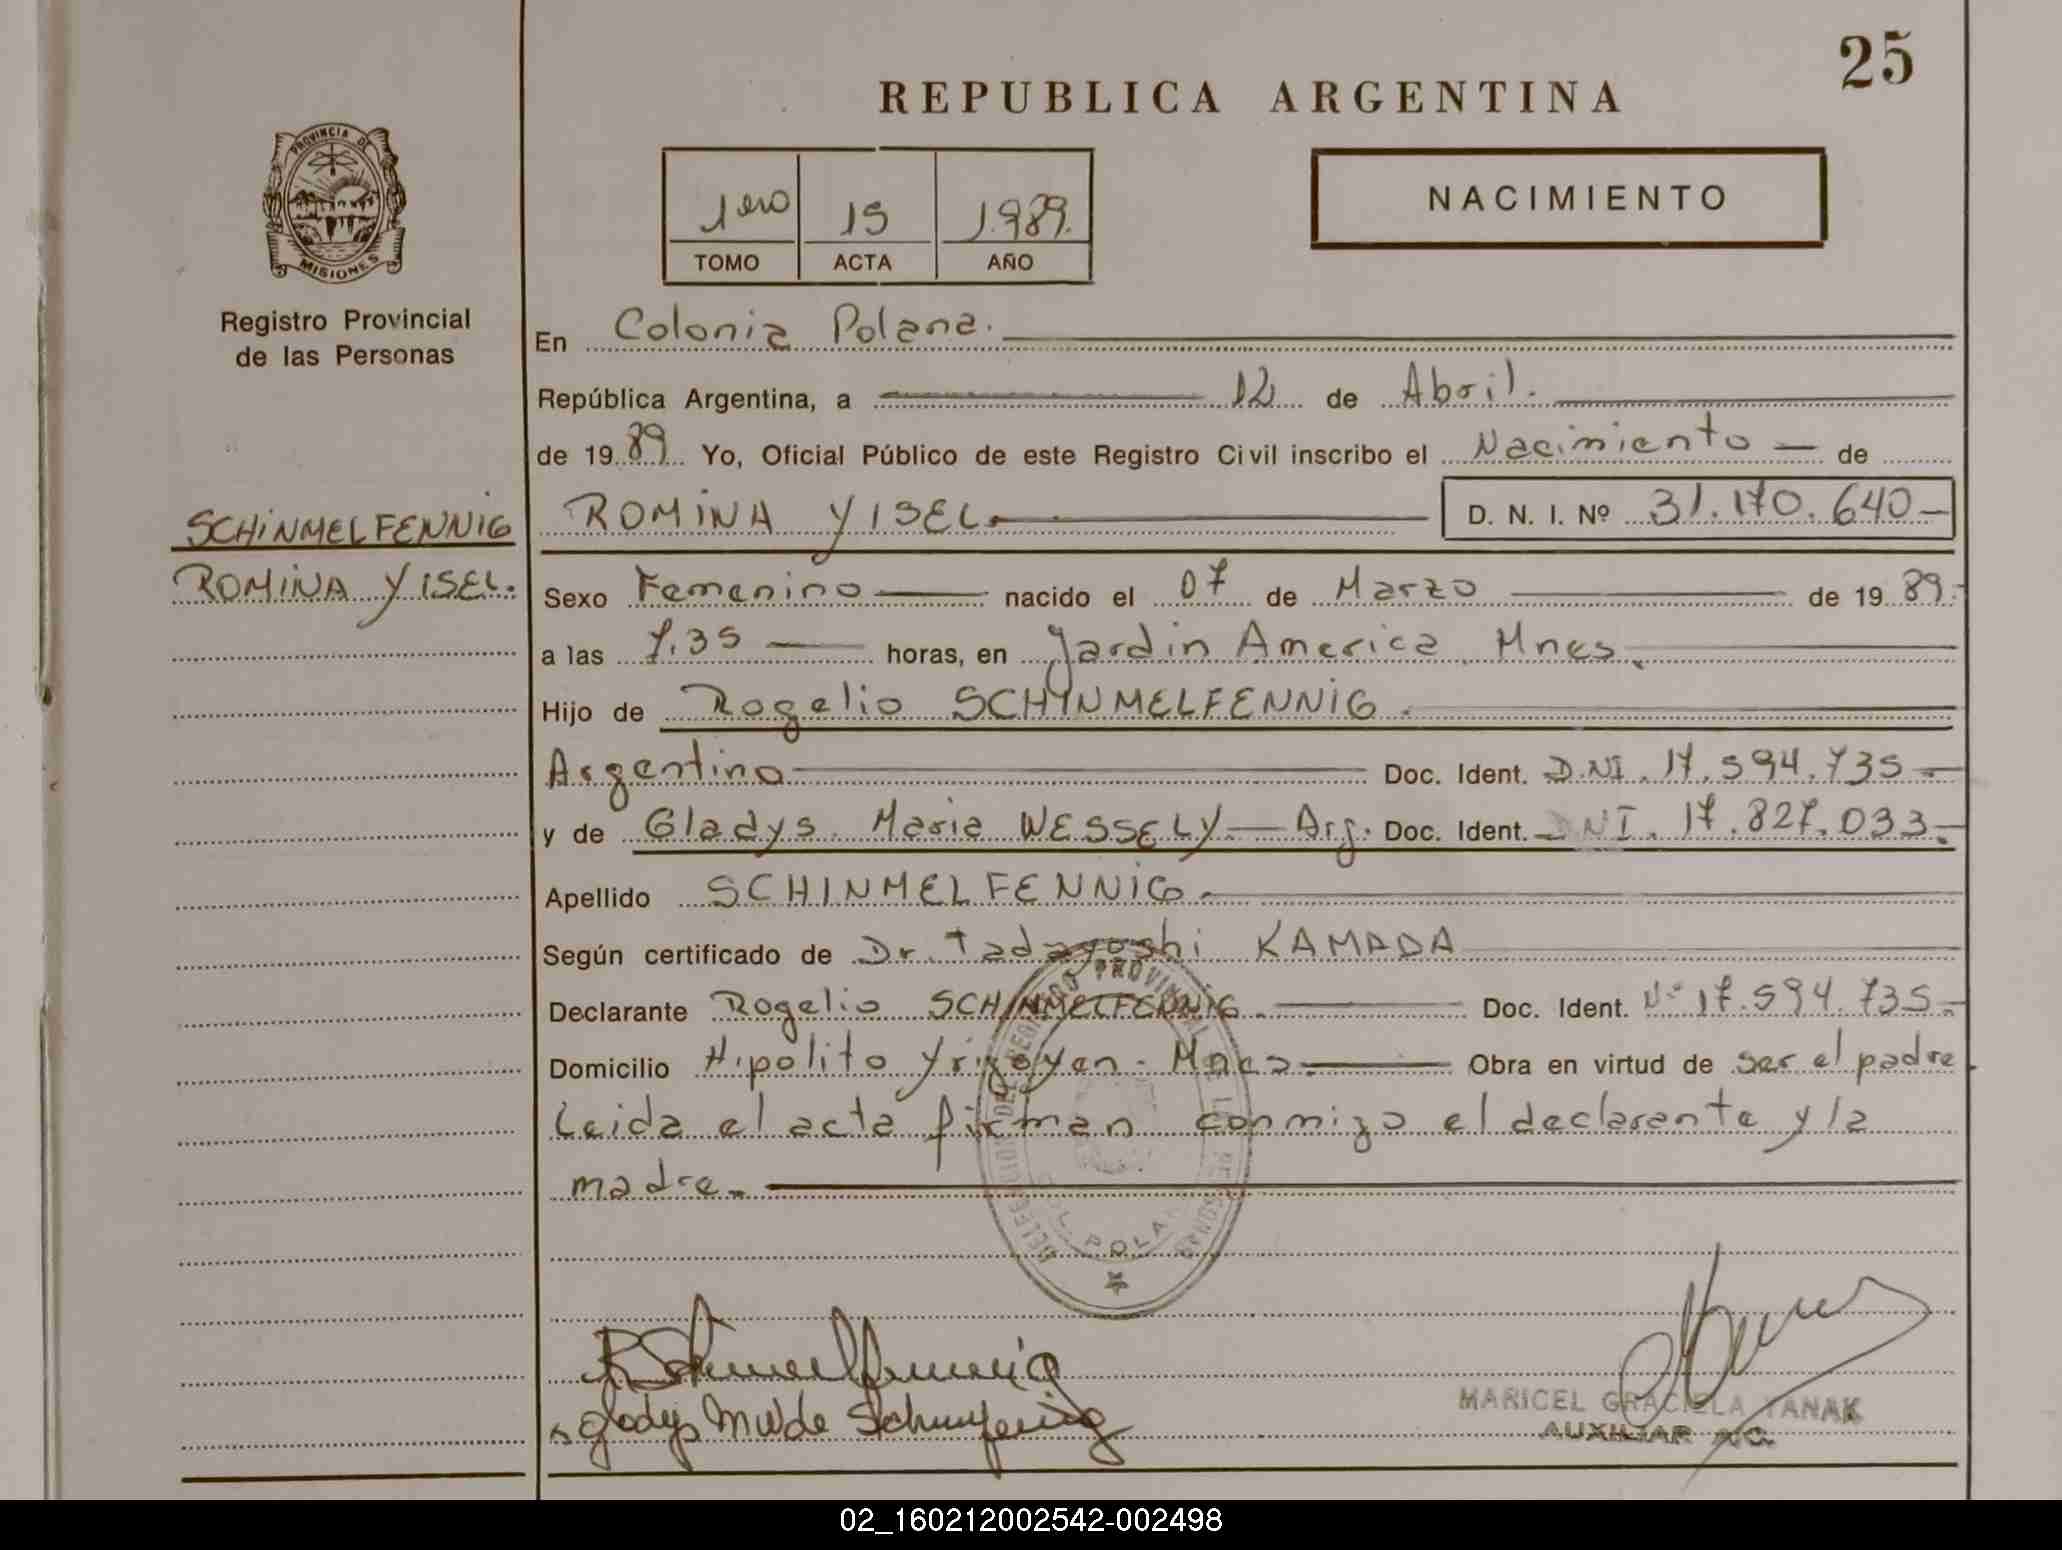 25
REPUBLICA ARGENTINA
PROVINCIA DE
MISIONES
Registro Provincial
de las Personas
1ero 15 1.989.
TOMO ACTA AÑO
NACIMIENTO
En Colonia Polana.
República Argentina, a 12 de Abril.
de 1989 Yo, Oficial Público de este Registro Civil inscribo el Nacimiento — de
SCHINMELFENNIG
ROMINA YISEL.
ROMINA YISEL. D. N. I. Nº 31.170.640-
Sexo Femenino nacido el 07 de Marzo de 1989.
a las 7.35 horas, en Jardin America Mnes.
Hijo de Rogelio SCHINMELFENNIG.
Argentino Doc. Ident. D.NI. 17.594.735-
y de Gladys Maria WESSELY — Arg. Doc. Ident. DNI. 17.827.033.-
Apellido SCHINMELFENNIG.
Según certificado de Dr. Tadayoshi KAMADA
Declarante Rogelio SCHINMELFENNIG. Doc. Ident. Nº 17.594.735.-
Domicilio Hipolito Yrigoyen - Mnes. Obra en virtud de ser el padre
Leida el acta firman conmigo el declarante y la
madre.
DELEGACION DEL REGISTRO PROVINCIAL DE LAS PERSONAS
COL. POLANA
MARICEL GRACIELA TANAK
AUXILIAR
02_160212002542-002498